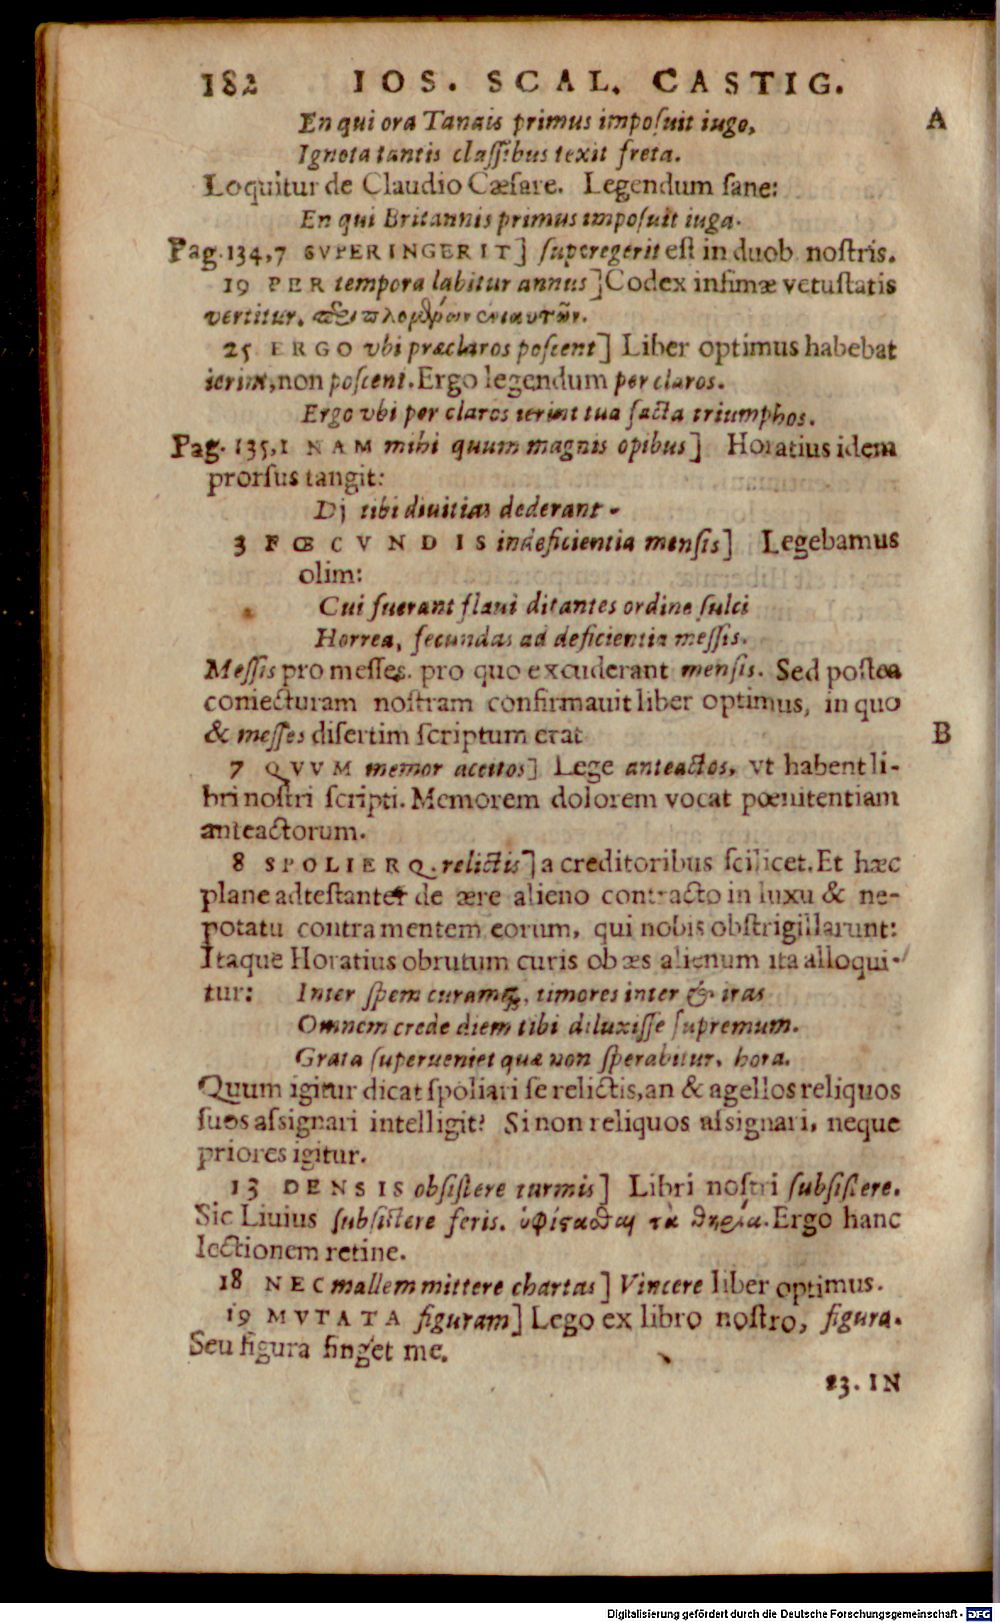 182 IOS. SCAL. CASTIG.
En qui ora Tanais primus imposuit iugo, A
Ignota tantis classibus texit freta.
Loquitur de Claudio Cæsare. Legendum sane:
En qui Britannis primus imposuit iuga.
Pag. 134,7 SVPERINGERIT] superegerit est in duob nostris.
19 PER tempora labitur annus] Codex infimæ vetustatis
vertitur.
25 ERGO vbi præclaros poscent] Liber optimus habebat
ierint, non poscent. Ergo legendum per claros.
Ergo vbi per claros ierint tua facta triumphos.
Pag. 135,1 NAM mihi quum magnis opibus] Horatius idem
prorsus tangit:
Dj tibi diuitias dederant.
3 FŒCVNDIS indeficientia mensis] Legebamus
olim:
Cui fuerant flaui ditantes ordine sulci
Horrea, fecundas ad deficientia messis.
Messis pro messes. pro quo excuderant mensis. Sed postea
coniecturam nostram confirmauit liber optimus, in quo
& messes disertim scriptum erat B
7 QVVM memor aceitos] Lege anteactos, vt habent li-
bri nostri scripti. Memorem dolorem vocat pœnitentiam
anteactorum.
8 SPOLIERQ. relictis] a creditoribus scilicet. Et hæc
plane adtestantur de ære alieno contracto in luxu & ne-
potatu contra mentem eorum, qui nobis obstrigillarunt:
Itaque Horatius obrutum curis ob æs alienum ita alloqui-
tur: Inter spem curamq;, timores inter & iras
Omnem crede diem tibi diluxisse supremum.
Grata superueniet quæ non sperabitur, hora.
Quum igitur dicat spoliari se relictis, an & agellos reliquos
suos assignari intelligit? Si non reliquos assignari, neque
priores igitur.
13 DENSIS obsistere turmis] Libri nostri subsistere.
Sic Liuius subsistere feris. ὑφίςαϑαι τὰ ϑηρία. Ergo hanc
lectionem retine.
18 NEC mallem mittere chartas] Vincere liber optimus.
19 MVTATA figuram] Lego ex libro nostro, figura.
Seu figura finget me.
23. IN
Digitalisierung gefördert durch die Deutsche Forschungsgemeinschaft - DFG